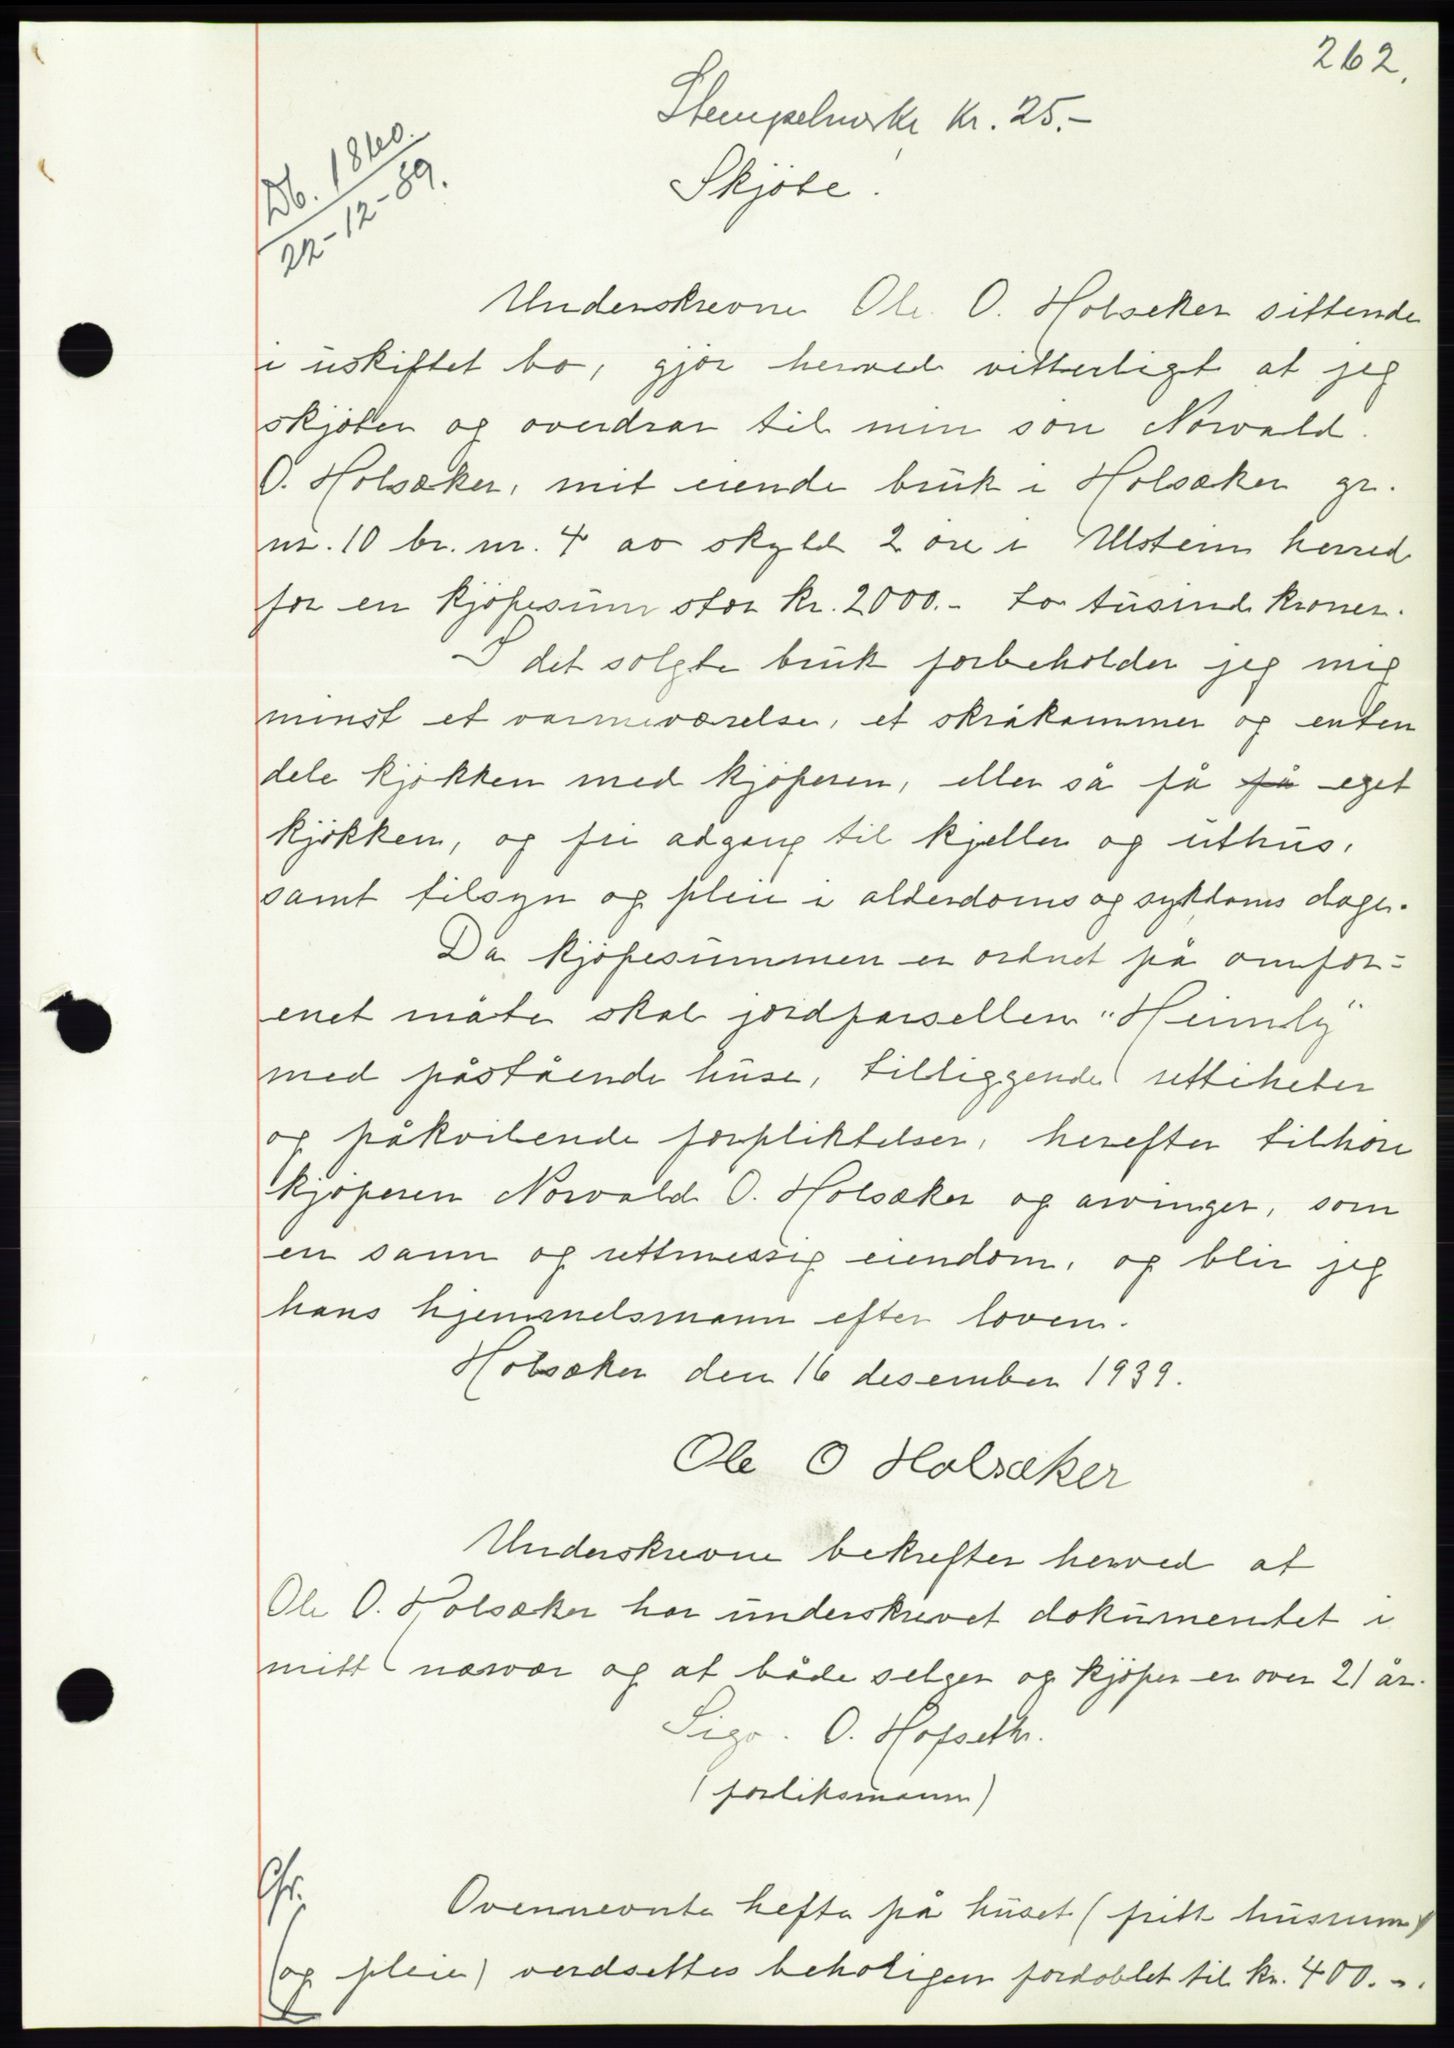 262.
Stempelmerke kr. 25.-
Skjöte.
Db. 1840.
22-12-39.
Underskrevne Ole O. Holseker sittende
i uskiftet bo, gjör herved vitterligt at jeg
skjöter og overdrar til min sön Norvald
O. Holsæker, mit eiende bruk i Holsæker gr.
nr. 10 br. nr. 4 av skyld 2 öre i Ulstein herred
for en kjöpesum stor kr. 2000.- to tusind kroner.
I det solgte bruk forbeholder jeg mig
minst et varmeværelse, et skråkammer og enten
dele kjökken med kjöperen, eller så få få eget
kjökken, og fri adgang til kjeller og uthus,
samt tilsyn og pleie i alderdoms og sykdoms dager.
Da kjöpesummen er ordnet på omfor=
enet måte skal jordparsellen "Heimly"
med påstående huse, tilliggende rettiheter
og påkvilende forpliktelser, herefter tilhöre
kjöperen Norvald O. Holsæker og arvinger, som
en sann og rettmessig eiendom, og blir jeg
hans hjemmelsmann efter loven.
Holsæker den 16 desember 1939.
Ole O Holsæker
Underskrevne bekrefter herved at
Ole O. Holsæker har underskrevet dokumentet i
mitt nærvær og at både selger og kjöper er over 21 år.
Sign. O. Hofseth.
(forliksmann)
Cfr.
Ovennevnte hefte på huset (fritt husrum)
(og pleie) verdsettes behörigen fordoblet til kr. 400.-.